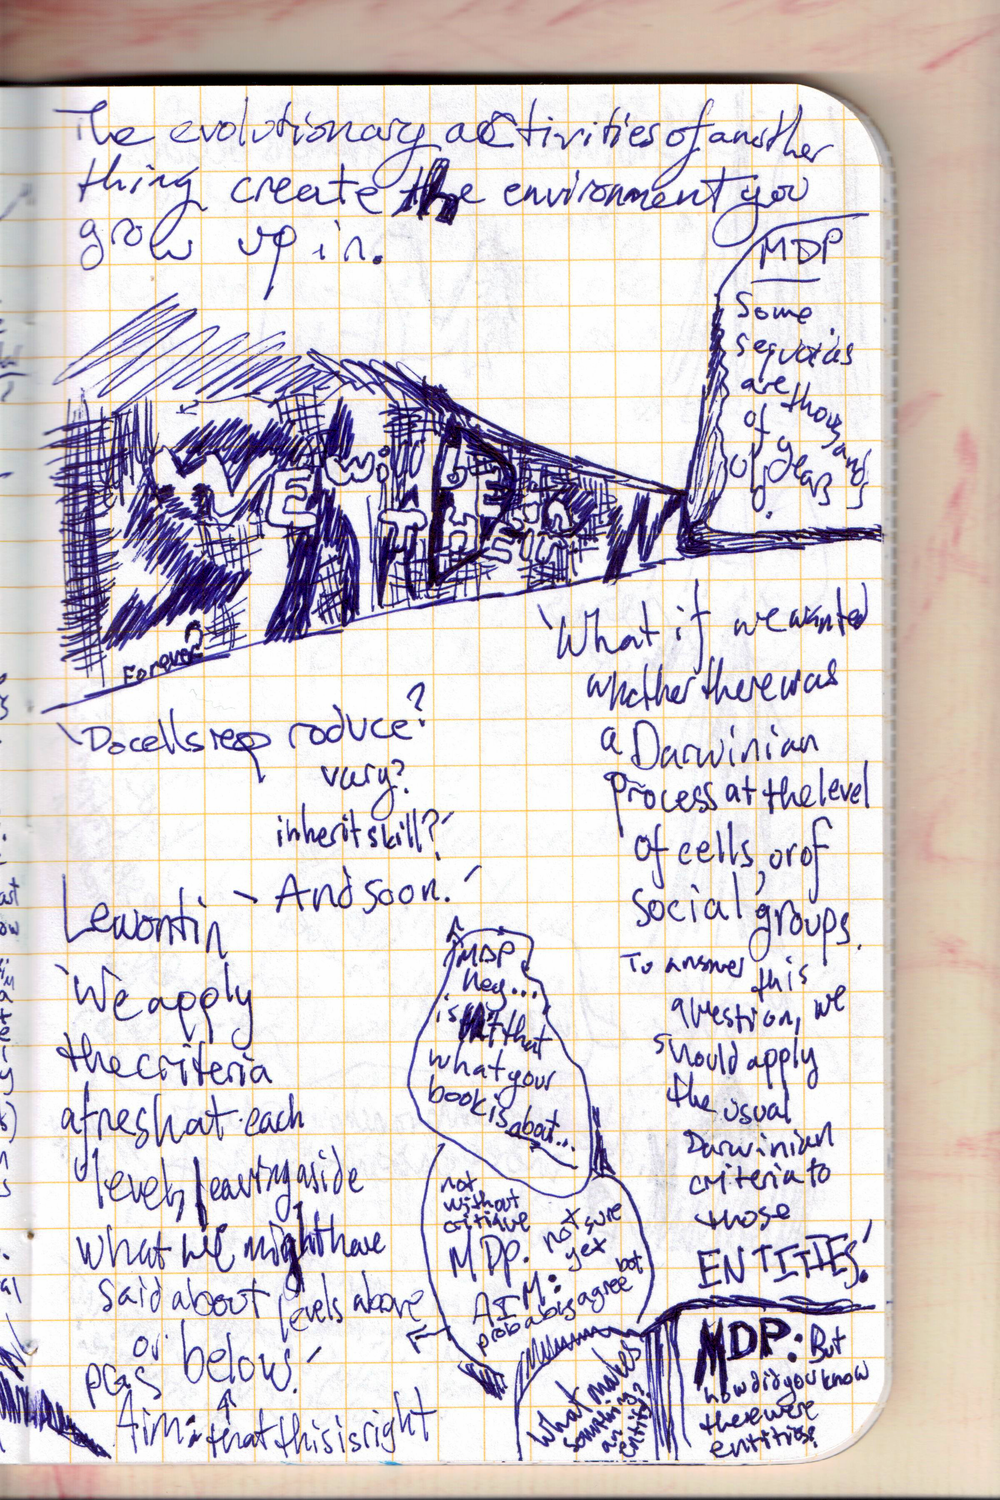 The evolutionary activities of another
thing create the environment you
grow up in.
MDP
Some
sequoias
are thousands
of years
old.
WE will BE
TOGETHER IN
Forever?
'What if we wanted
whether there was
a Darwinian
process at the level
of cells, or of
social groups.
To answer this
question, we
should apply
the usual
Darwinian
criteria to
those
ENTITIES.'
'Do cells reproduce?
vary?
inherit skill?'
'And soon.'
Lewontin
'We apply
the criteria
afresh at each
level, leaving aside
what we might have
said about levels above
or below.'
PGS
Aim: that this is right
MDP
hey...
isn't that
what your
book is about...
not
without
critique
MDP. not sure
yet but
AIM: probably agree
What makes
something
an
entity?
MDP: But
how did you know
there were
entities?